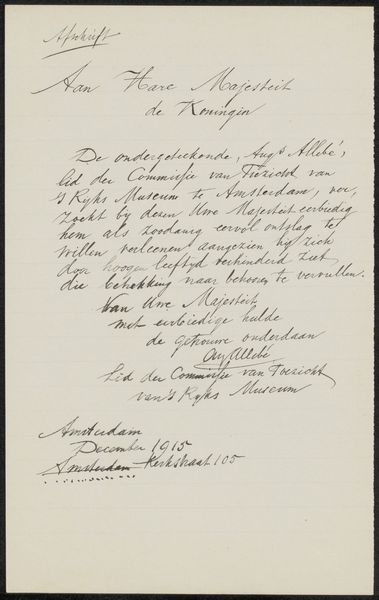 Afschrift
Aan Hare Majesteit
de Koningin
De ondergetekende, Augs Allebé,
lid der Commissie van Toezicht van
's Ryks Museum te Amsterdam, ver,
zoekt by dezen Uwe Majesteit eerbiedig
hem als zoodanig eervol ontslag te
willen verleenen aangezien hy zich
door hoogen leeftyd verhinderd ziet
die betrekking naar behooren te vervullen.
Van Uwe Majesteit
met eerbiedige hulde
de getrouwe onderdaan
Aug Allebé
Lid der Commissie van Toezicht
van 's Ryks Museum
Amsterdam
December 1915
Amsterdam Kerkstraat 105